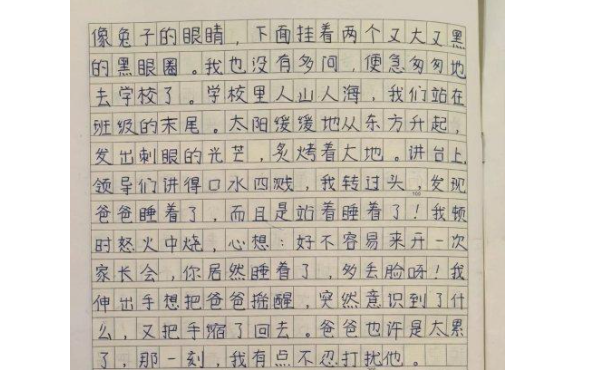 像兔子的眼睛，下面挂着两个又大又黑
的黑眼圈。我也没有多问，便急匆匆地
去学校了。学校里人山人海，我们站在
班级的末尾。太阳缓缓地从东方升起，
发出刺眼的光芒，炙烤着大地。讲台上，
领导们讲得口水四溅，我转过头，发现
爸爸睡着了，而且是站着睡着了！我顿
时怒火中烧，心想：好不容易来开一次
家长会，你居然睡着了，多丢脸呀！我
伸出手想把爸爸摇醒，突然意识到了什
么，又把手缩了回去。爸爸也许是太累
了，那一刻，我有点不忍打扰他。